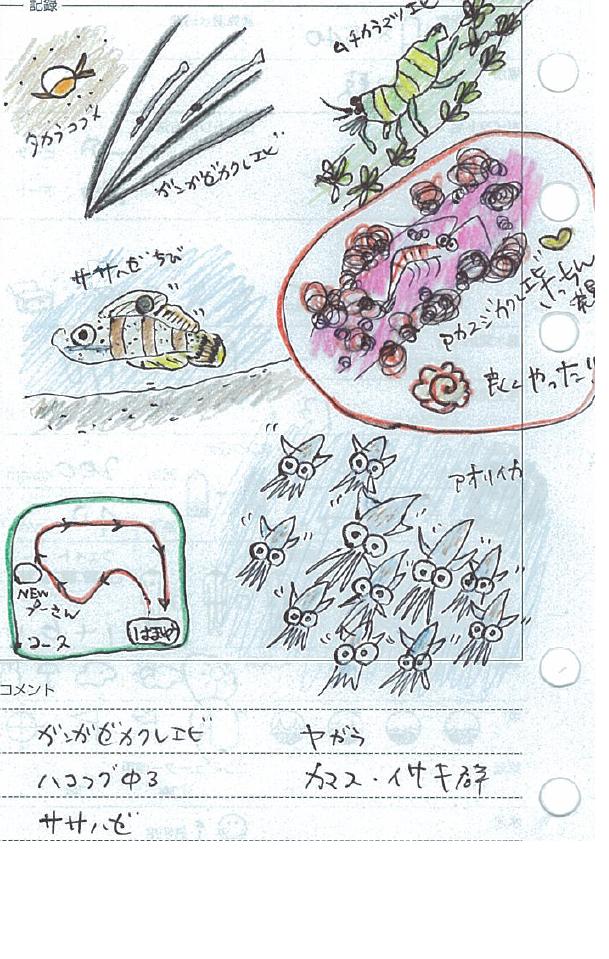 記録
タカラコブメ
ガンガゼカクレエビ
ムチカラマツエビ
ササハゼちび
アカスジカクレエビ
良くやった!
アオリイカ
NEW
プーさん
コース
はまや
コメント
ガンガゼカクレエビ
ヤガラ
ハコフグ中3
カマス・イサキ群
ササハゼ